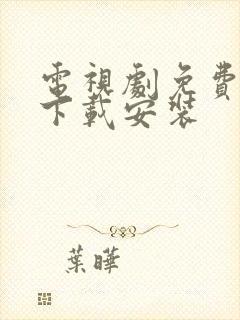 電視劇免費
下載安裝
葉曄